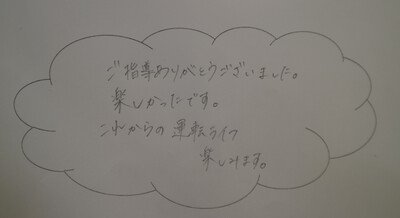 ご指導ありがとうございました。
楽しかったです。
これからの運転ライフ
楽しみます。